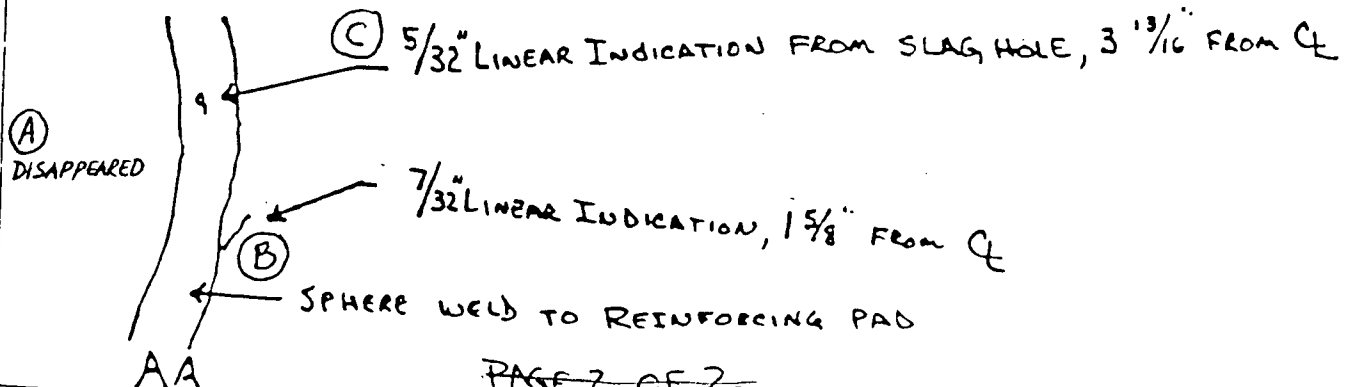 Ⓒ 5/32" LINEAR INDICATION FROM SLAG HOLE, 3 13/16" FROM ℄
Ⓐ
DISAPPEARED
7/32" LINEAR INDICATION, 1 5/8" FROM ℄
Ⓑ
SPHERE WELD TO REINFORCING PAD
AA
PAGE 2 OF 2